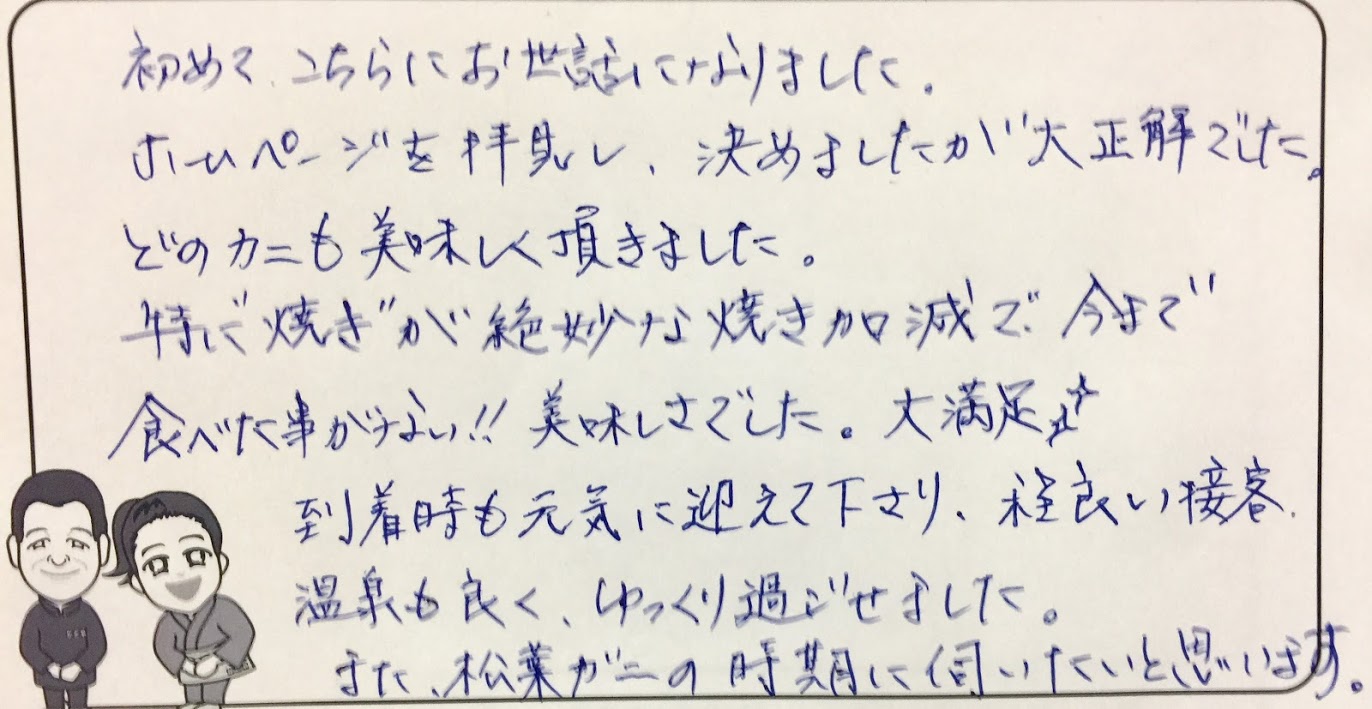 初めて、こちらにお世話になりました。
ホームページを拝見し、決めましたが大正解でした。
どのカニも美味しく頂きました。
特に"焼き"が絶妙な焼き加減で、今まで
食べた事がない!!美味しさでした。大満足☆
到着時も元気に迎えて下さり、程良い接客、
温泉も良く、ゆっくり過ごせました。
また、松葉ガニの時期に伺いたいと思います。